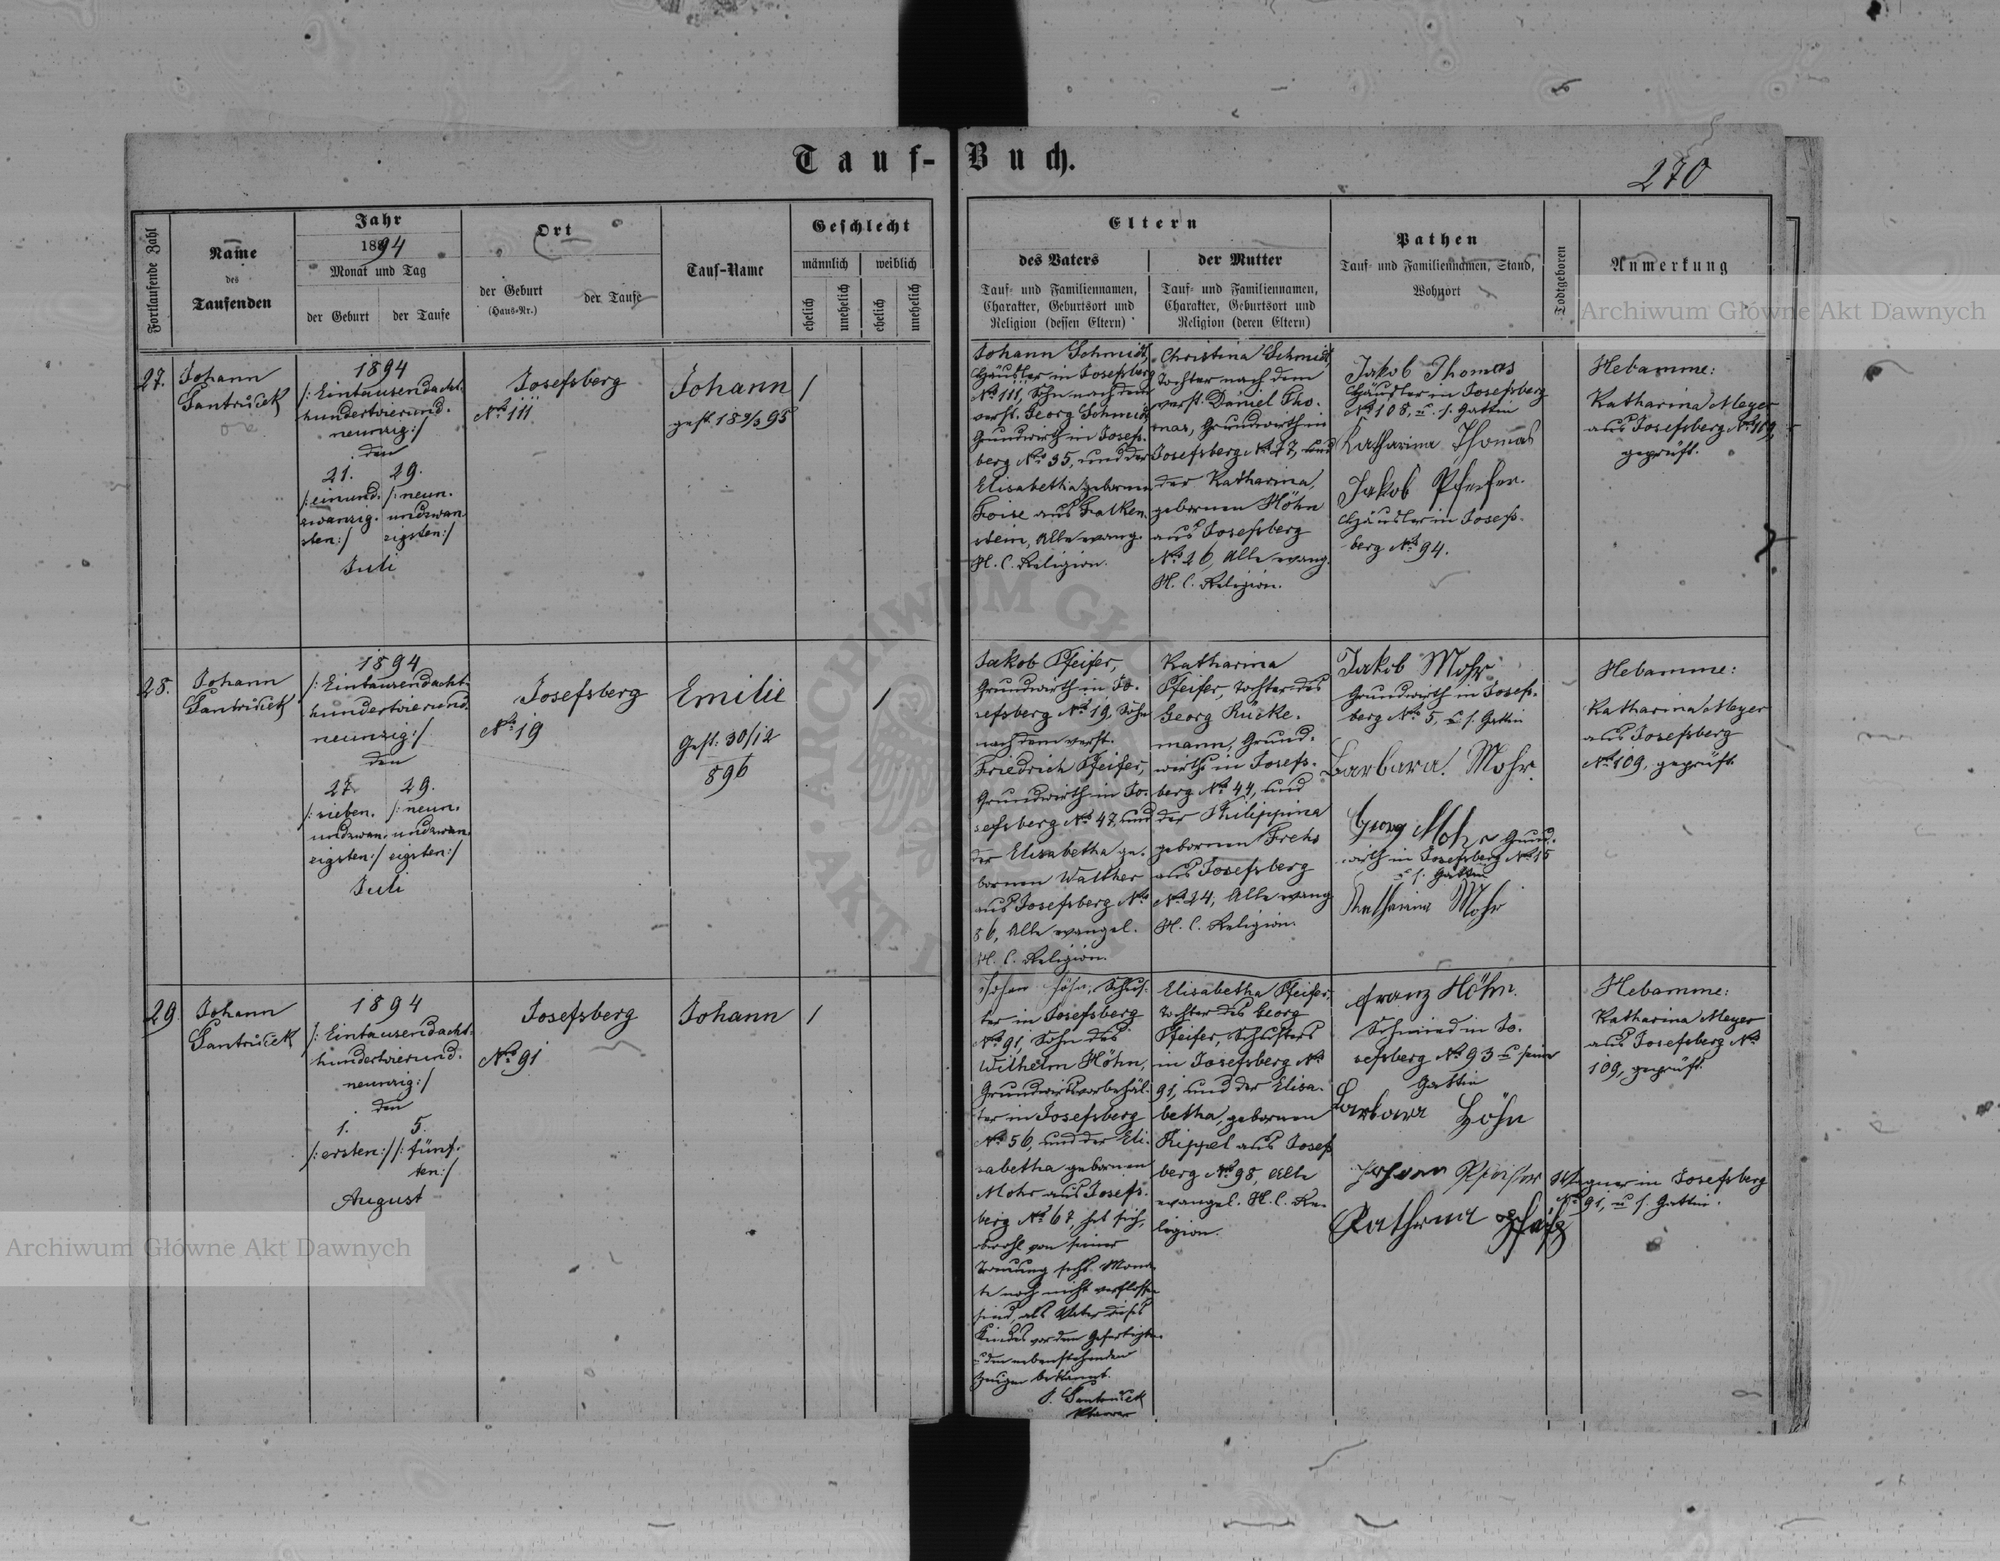 Tauf-Buch.
270
Fortlaufende Zahl
Name
des
Taufenden
Jahr
1894
Monat und Tag
der Geburt
der Taufe
Ort
der Geburt
(Haus-Nr.)
der Taufe
Tauf-Name
Geschlecht
männlich
weiblich
ehelich
unehelich
ehelich
unehelich
Eltern
des Vaters
Tauf- und Familiennamen,
Charakter, Geburtsort und
Religion (dessen Eltern)
der Mutter
Tauf- und Familiennamen,
Charakter, Geburtsort und
Religion (deren Eltern)
Pathen
Tauf- und Familiennamen, Stand,
Wohnort
Todtgeboren
Anmerkung
27.
Johann
Gantrücek
1894
/: Eintausendacht-
hundertvierund-
neunzig :/
den
21. 29.
/: einund- /: neun-
zwanzig- undzwan
sten :/ zigsten :/
Juli
Josefsberg
No 111
Johann
gest. 18
1
Johann Schmidt,
Häusler in Josefsberg
No 111, Sohn nach dem
verst. Georg Schmidt,
Grundwirth in Josefs-
berg No 35, und der
Elisabetha gebornen
aus Falken-
stein, Alle evang.
H. C. Religion.
Christina Schmidt,
Tochter nach dem
verst. Daniel Tho-
mas, Grundwirth in
Josefsberg No 27, und
der Katharina,
gebornen Höhn
aus Josefsberg
No 26, Alle evang.
H. C. Religion.
Jakob Thomas
Häusler in Josefsberg
No 108, u. s. Gattin
Katharina Thomas
Jakob Pfeifer
Häusler in Josefs-
berg No 94.
Hebamme:
Katharina Meyer
aus Josefsberg No 109,
geprüft.
28.
Johann
Gantrücek
1894
/: Eintausendacht-
hundertvierund-
neunzig :/
den
27. 29.
/: sieben- /: neun-
undzwan- undzwan-
zigsten :/ zigsten :/
Juli
Josefsberg
No 19
Emilie
Gest. 30/12
896
1
Jakob Pfeifer,
Grundwirth in Jo-
sefsberg No 19, Sohn
nach dem verst.
Friedrich Pfeifer,
Grundwirth in Jo-
sefsberg No 47, und
der Elisabetha ge-
bornen Walther
aus Josefsberg No
86, Alle evangel.
H. C. Religion.
Katharina
Pfeifer, Tochter des
Georg Rücke-
mann, Grund-
wirths in Josefs-
berg No 44, und
der Philippina
gebornen
aus Josefsberg
No 24, Alle evang.
H. C. Religion.
Jakob Mohr
Grundwirth in Josefs-
berg No 5, u. s. Gattin
Barbara Mohr.
Georg Mohr Grund-
wirth in Josefsberg No 15
u. s. Gattin
Katharina Mohr
Hebamme:
Katharina Meyer
aus Josefsberg
No 109, geprüft.
29
Johann
Gantrücek
1894
/: Eintausendacht-
hundertvierund-
neunzig :/
den
1. 5.
/: ersten :/ /: fünf-
ten :/
August
Josefsberg
No 91
Johann
1
Johann Höhn, Schus-
ter in Josefsberg
No 91, Sohn des
Wilhelm Höhn,
Grundwirtsvorbehäl-
ter in Josefsberg
No 56, und der Eli-
sabetha gebornen
Mohr aus Josefs-
berg No 67, hat sich,
obwohl von seiner
Trauung sechs Mona-
te noch nicht verflossen
sind, als Vater dieses
Kindes vor dem Gefertigten
u. den nebenstehenden
Zeugen bekannt.
J. Gantrücek
Pfarrer
Elisabetha Pfeifer,
Tochter des Georg
Pfeifer, Schusters
in Josefsberg No
91, und der Elisa-
betha, gebornen
Rippel aus Josefs
berg No 98, Alle
evangel. H. C. Re-
ligion.
Franz Höhn.
Schmied in Jo-
sefsberg No 93 u. seine
Gattin
Barbara Höhn
Johann Pfeifer Wagner in Josefsberg
No 91, u. s. Gattin.
Hebamme:
Katharina Meyer
aus Josefsberg No
109, geprüft.
Archiwum Główne Akt Dawnych
Archiwum Główne Akt Dawnych